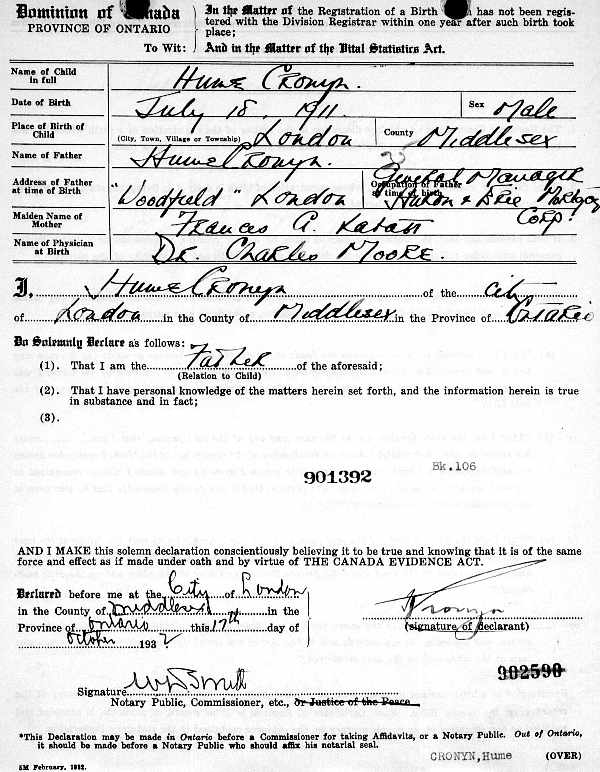 Dominion of Canada
PROVINCE OF ONTARIO
To Wit:
In the Matter of the Registration of a Birth which has not been regis-
tered with the Division Registrar within one year after such birth took
place;
And in the Matter of the Vital Statistics Act.
Name of Child in full Hume Cronyn.
Date of Birth July 18, 1911. Sex Male
Place of Birth of Child (City, Town, Village or Township) London County Middlesex
Name of Father Hume Cronyn.
Address of Father at time of Birth "Woodfield" London Occupation of Father at time of Birth General Manager Huron & Erie Mortgage Corp.
Maiden Name of Mother Frances A. Labatt
Name of Physician at Birth Dr. Charles Moore.
I, Hume Cronyn of the City
of London in the County of Middlesex in the Province of Ontario
Do Solemnly Declare as follows:
(1). That I am the Father of the aforesaid;
(Relation to Child)
(2). That I have personal knowledge of the matters herein set forth, and the information herein is true
in substance and in fact;
(3).
Bk.106
901392
AND I MAKE this solemn declaration conscientiously believing it to be true and knowing that it is of the same
force and effect as if made under oath and by virtue of THE CANADA EVIDENCE ACT.
Declared before me at the City of London
in the County of Middlesex in the
Province of Ontario this 17th day of
October 1932
H Cronyn
(signature of declarant)
902590
Signature
Notary Public, Commissioner, etc., or Justice of the Peace
*This Declaration may be made in Ontario before a Commissioner for taking Affidavits, or a Notary Public. Out of Ontario,
it should be made before a Notary Public who should affix his notarial seal.
CRONYN,Hume (OVER)
5M February, 1932.